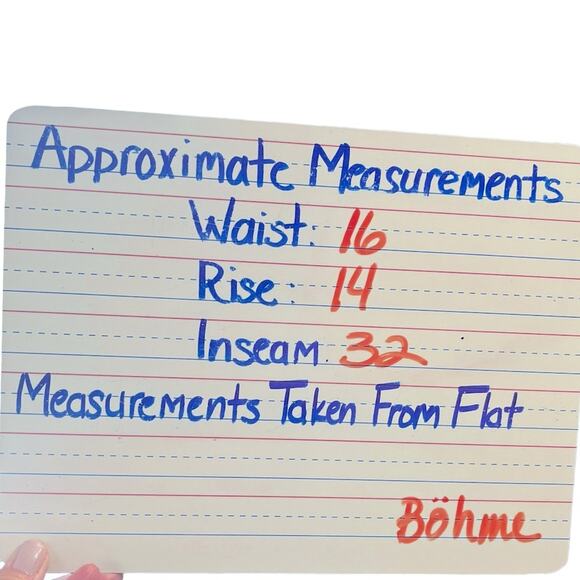 Approximate Measurements
Waist: 16
Rise: 14
Inseam. 32
Measurements Taken From Flat
Böhme